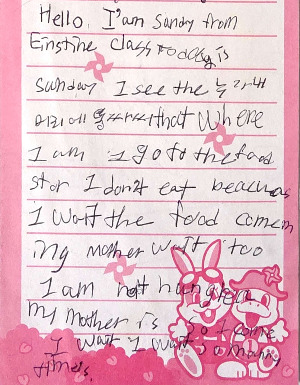 Hello. I'am Sandy from
Einstine class today is
Sunday I see the
that where
I am I go to the food
stor I don't eat
I wait the food comem
ing mother wait too
I am not hungry
my mother is so I come
I wait I wait so many
times.